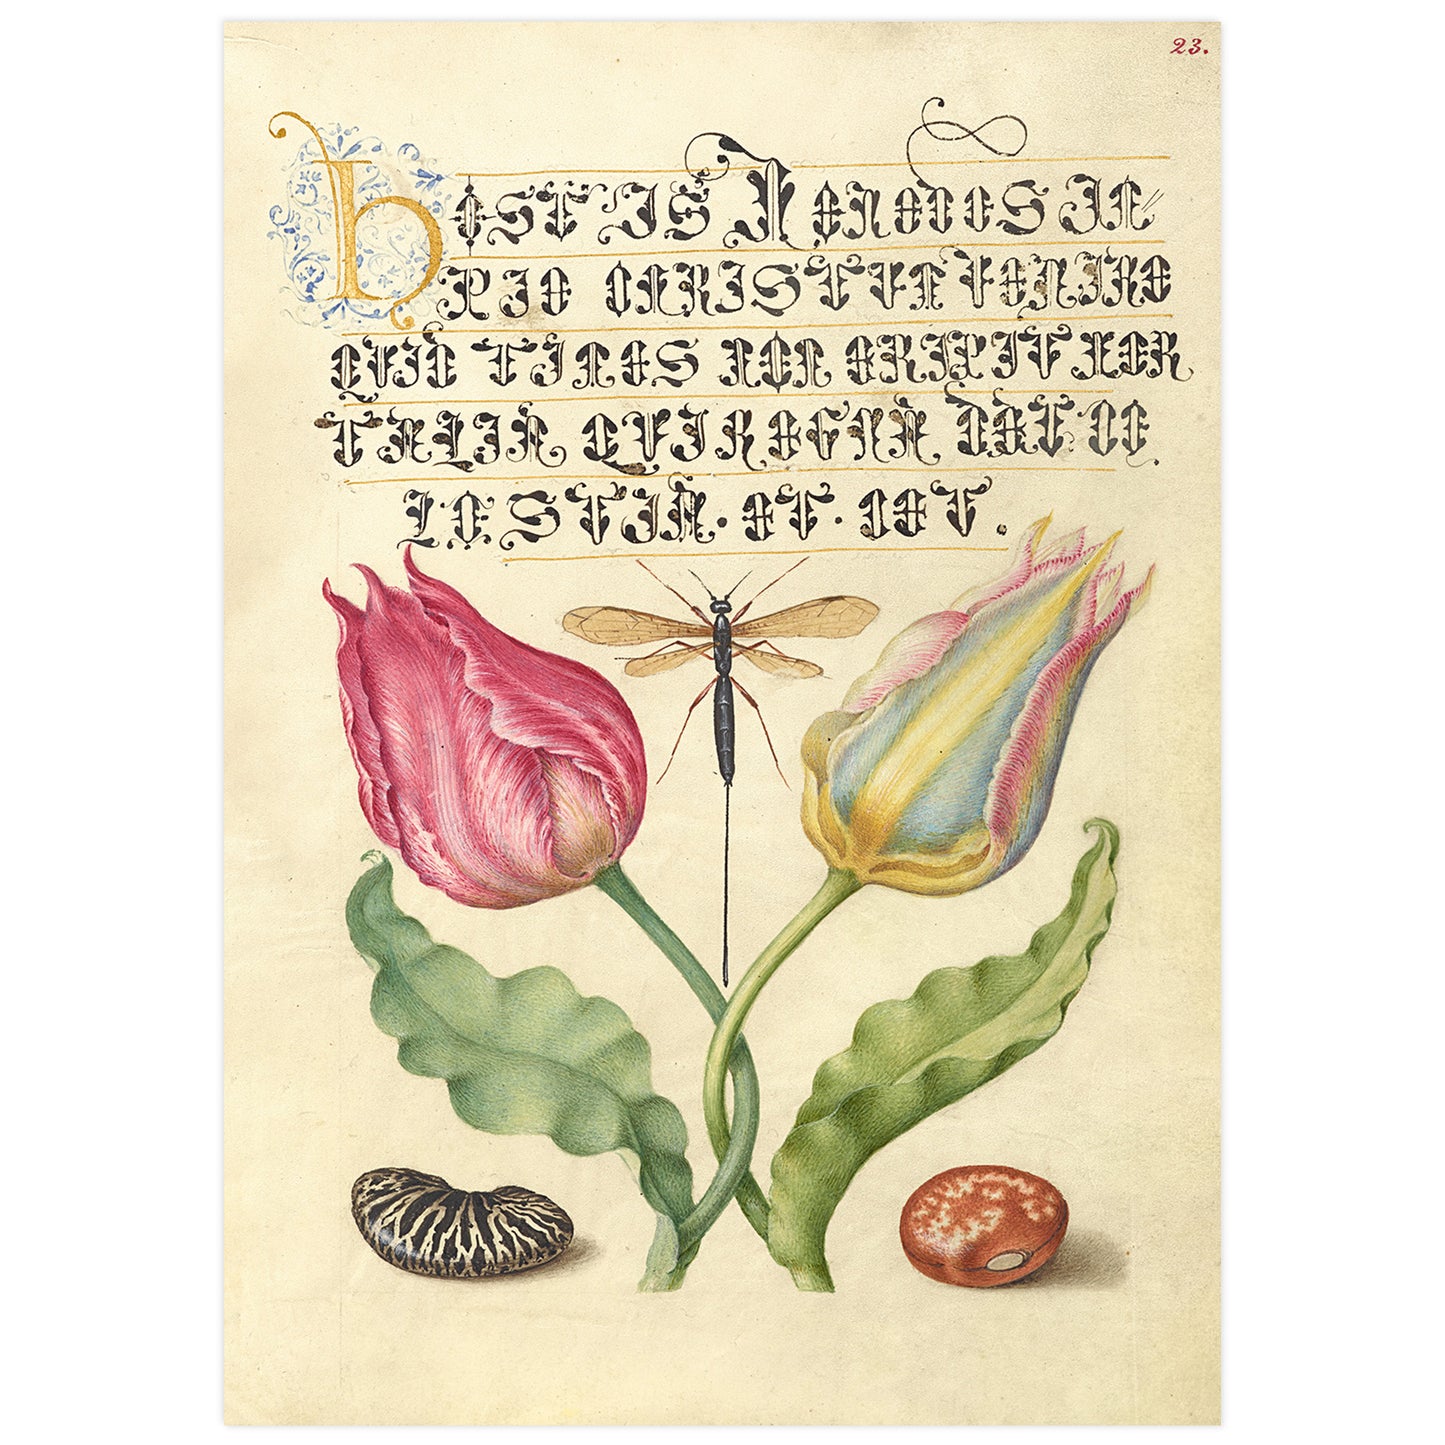 23.
HOSTIS HERODES IM=
PIE CHRISTVM VENIRE
QVID TIMES NON ERIPIT MOR
TALIA QVI REGNA DAT COE
LESTIA · ET · CET.